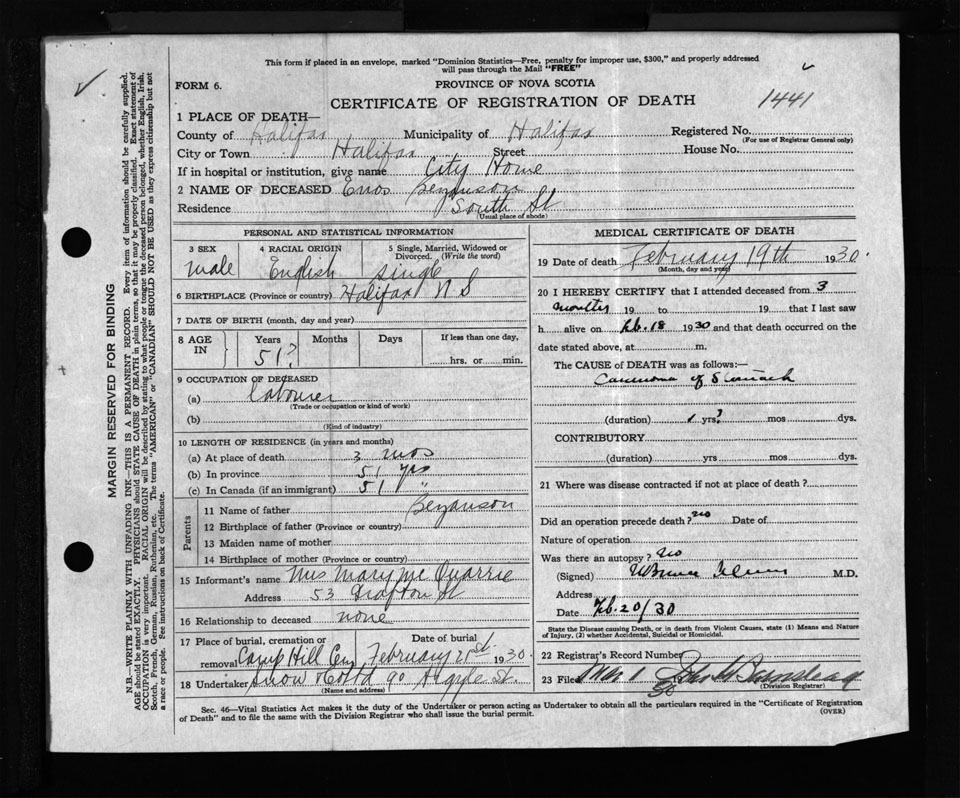 This form if placed in an envelope, marked "Dominion Statistics—Free, penalty for improper use, $300," and properly addressed
will pass through the Mail "FREE"
FORM 6.
PROVINCE OF NOVA SCOTIA
CERTIFICATE OF REGISTRATION OF DEATH
1441
1 PLACE OF DEATH—
County of Halifax Municipality of Halifax Registered No.
(For use of Registrar General only)
City or Town Halifax Street House No.
If in hospital or institution, give name City Home
2 NAME OF DECEASED Enos Bezanson
Residence South St
(Usual place of abode)
PERSONAL AND STATISTICAL INFORMATION
3 SEX 4 RACIAL ORIGIN 5 Single, Married, Widowed or
Divorced. (Write the word)
male English single
6 BIRTHPLACE (Province or country) Halifax N S
7 DATE OF BIRTH (month, day and year)
8 AGE IN Years Months Days If less than one day,
51? hrs. or min.
9 OCCUPATION OF DECEASED
(a) labourer
(Trade or occupation or kind of work)
(b)
(Kind of industry)
10 LENGTH OF RESIDENCE (in years and months)
(a) At place of death 3 mos
(b) In province 51 yrs
(c) In Canada (if an immigrant) 51 "
Parents
11 Name of father Bezanson
12 Birthplace of father (Province or country)
13 Maiden name of mother
14 Birthplace of mother (Province or country)
15 Informant's name Mrs Mary Mc Quarrie
Address 53 Grafton St
16 Relationship to deceased none
17 Place of burial, cremation or Date of burial
removal Camp Hill Cem February 21st 1930
18 Undertaker Snow & Co Ltd 90 Argyle St.
(Name and address)
MEDICAL CERTIFICATE OF DEATH
19 Date of death February 19th 1930.
(Month, day and year)
20 I HEREBY CERTIFY that I attended deceased from 3
months 19 to 19 that I last saw
h alive on Feb. 18 1930 and that death occurred on the
date stated above, at m.
The CAUSE OF DEATH was as follows:—
Carcinoma of Stomach
(duration) 1 yrs? mos dys.
CONTRIBUTORY
(duration) yrs mos dys.
21 Where was disease contracted if not at place of death?
Did an operation precede death? no Date of
Nature of operation
Was there an autopsy? No
(Signed) M.D.
Address
Date Feb. 20/30
State the Disease causing Death, or in death from Violent Causes, state (1) Means and Nature
of Injury, (2) whether Accidental, Suicidal or Homicidal.
22 Registrar's Record Number
23 Filed Mar 1 30 John H Barnstead
(Division Registrar)
Sec. 46—Vital Statistics Act makes it the duty of the Undertaker or person acting as Undertaker to obtain all the particulars required in the "Certificate of Registration
of Death" and to file the same with the Division Registrar who shall issue the burial permit.
(OVER)
MARGIN RESERVED FOR BINDING
N.B.—WRITE PLAINLY WITH UNFADING INK—THIS IS A PERMANENT RECORD. Every item of information should be carefully supplied.
AGE should be stated EXACTLY. PHYSICIANS should STATE CAUSE OF DEATH in plain terms, so that it may be properly classified. Exact statement of
OCCUPATION is very important. RACIAL ORIGIN will be described by stating to what people or tongue the deceased person belonged, whether English, Irish,
Scotch, French, German, Russian, Ruthenian, etc. The terms "AMERICAN" or "CANADIAN" SHOULD NOT BE USED as they express citizenship but not
a race or people. See instructions on back of Certificate.